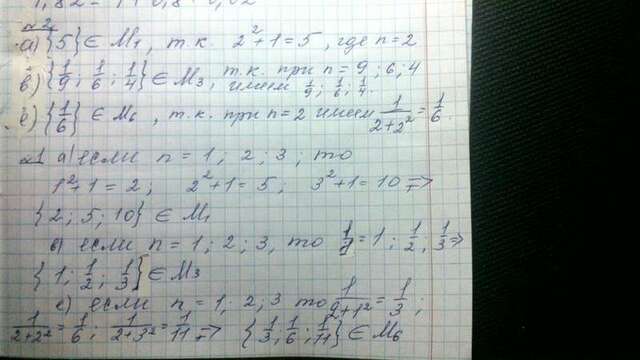 1,82 = 1 + 0,8 + 0,02
№2
а) {5} ∈ M₁, т.к. 2²+1=5, где n=2
в) {1/9; 1/6; 1/4} ∈ M₃, т.к. при n=9; 6; 4
имеем 1/9; 1/6; 1/4.
с) {1/6} ∈ M₆, т.к. при n=2 имеем 1/(2+2²) = 1/6.
№1 а) если n=1; 2; 3; то
1²+1=2; 2²+1=5; 3²+1=10 ⇒
{2; 5; 10} ∈ M₁
в) если n=1; 2; 3, то 1/1=1; 1/2, 1/3 ⇒
{1; 1/2; 1/3} ∈ M₃
с) если n=1; 2; 3 то 1/(2+1²) = 1/3;
1/(2+2²) = 1/6; 1/(2+3²) = 1/11 ⇒ {1/3; 1/6; 1/11} ∈ M₆